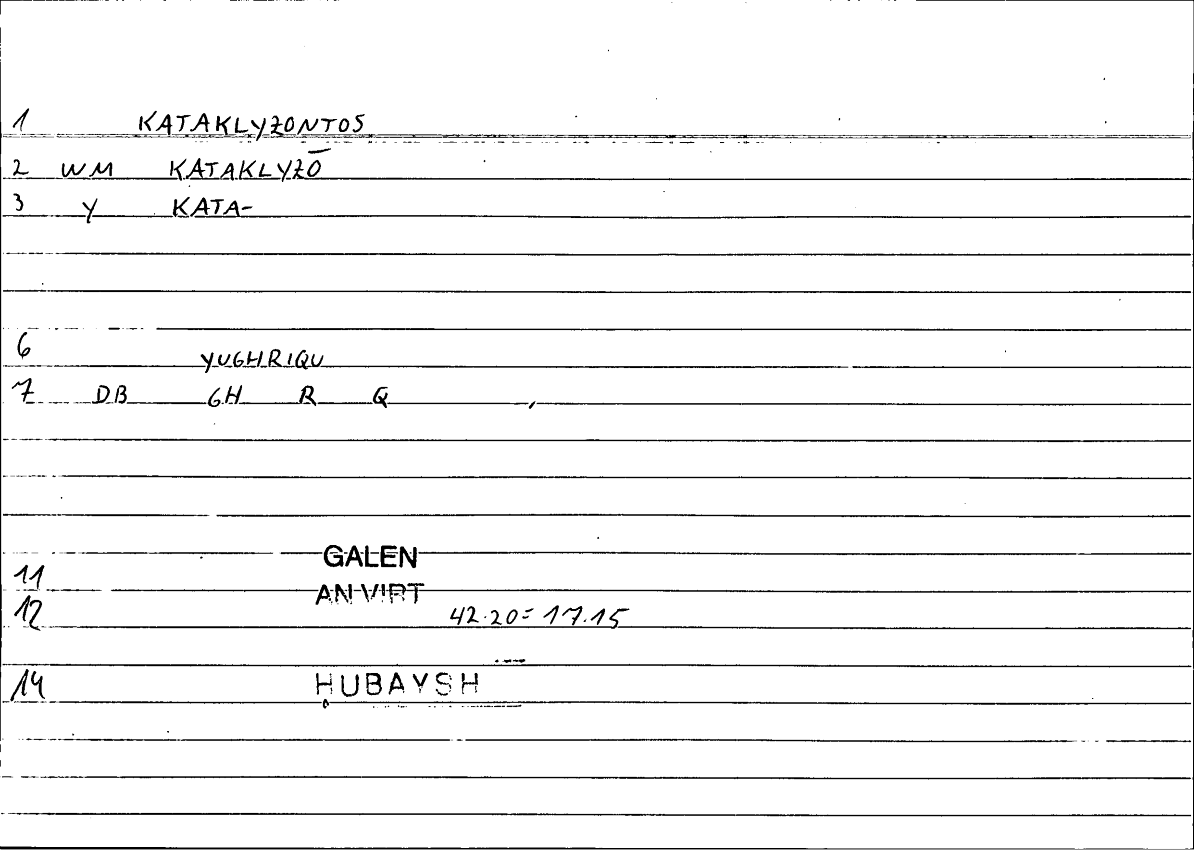 1 KATAKLYZONTOS
2 WM KATAKLYZŌ
3 Y KATA-
6 YUGHRIQU
7 DB GH R Q
11 GALEN
12 AN VIRT 42.20 = 17.15
14 ḤUBAYSH